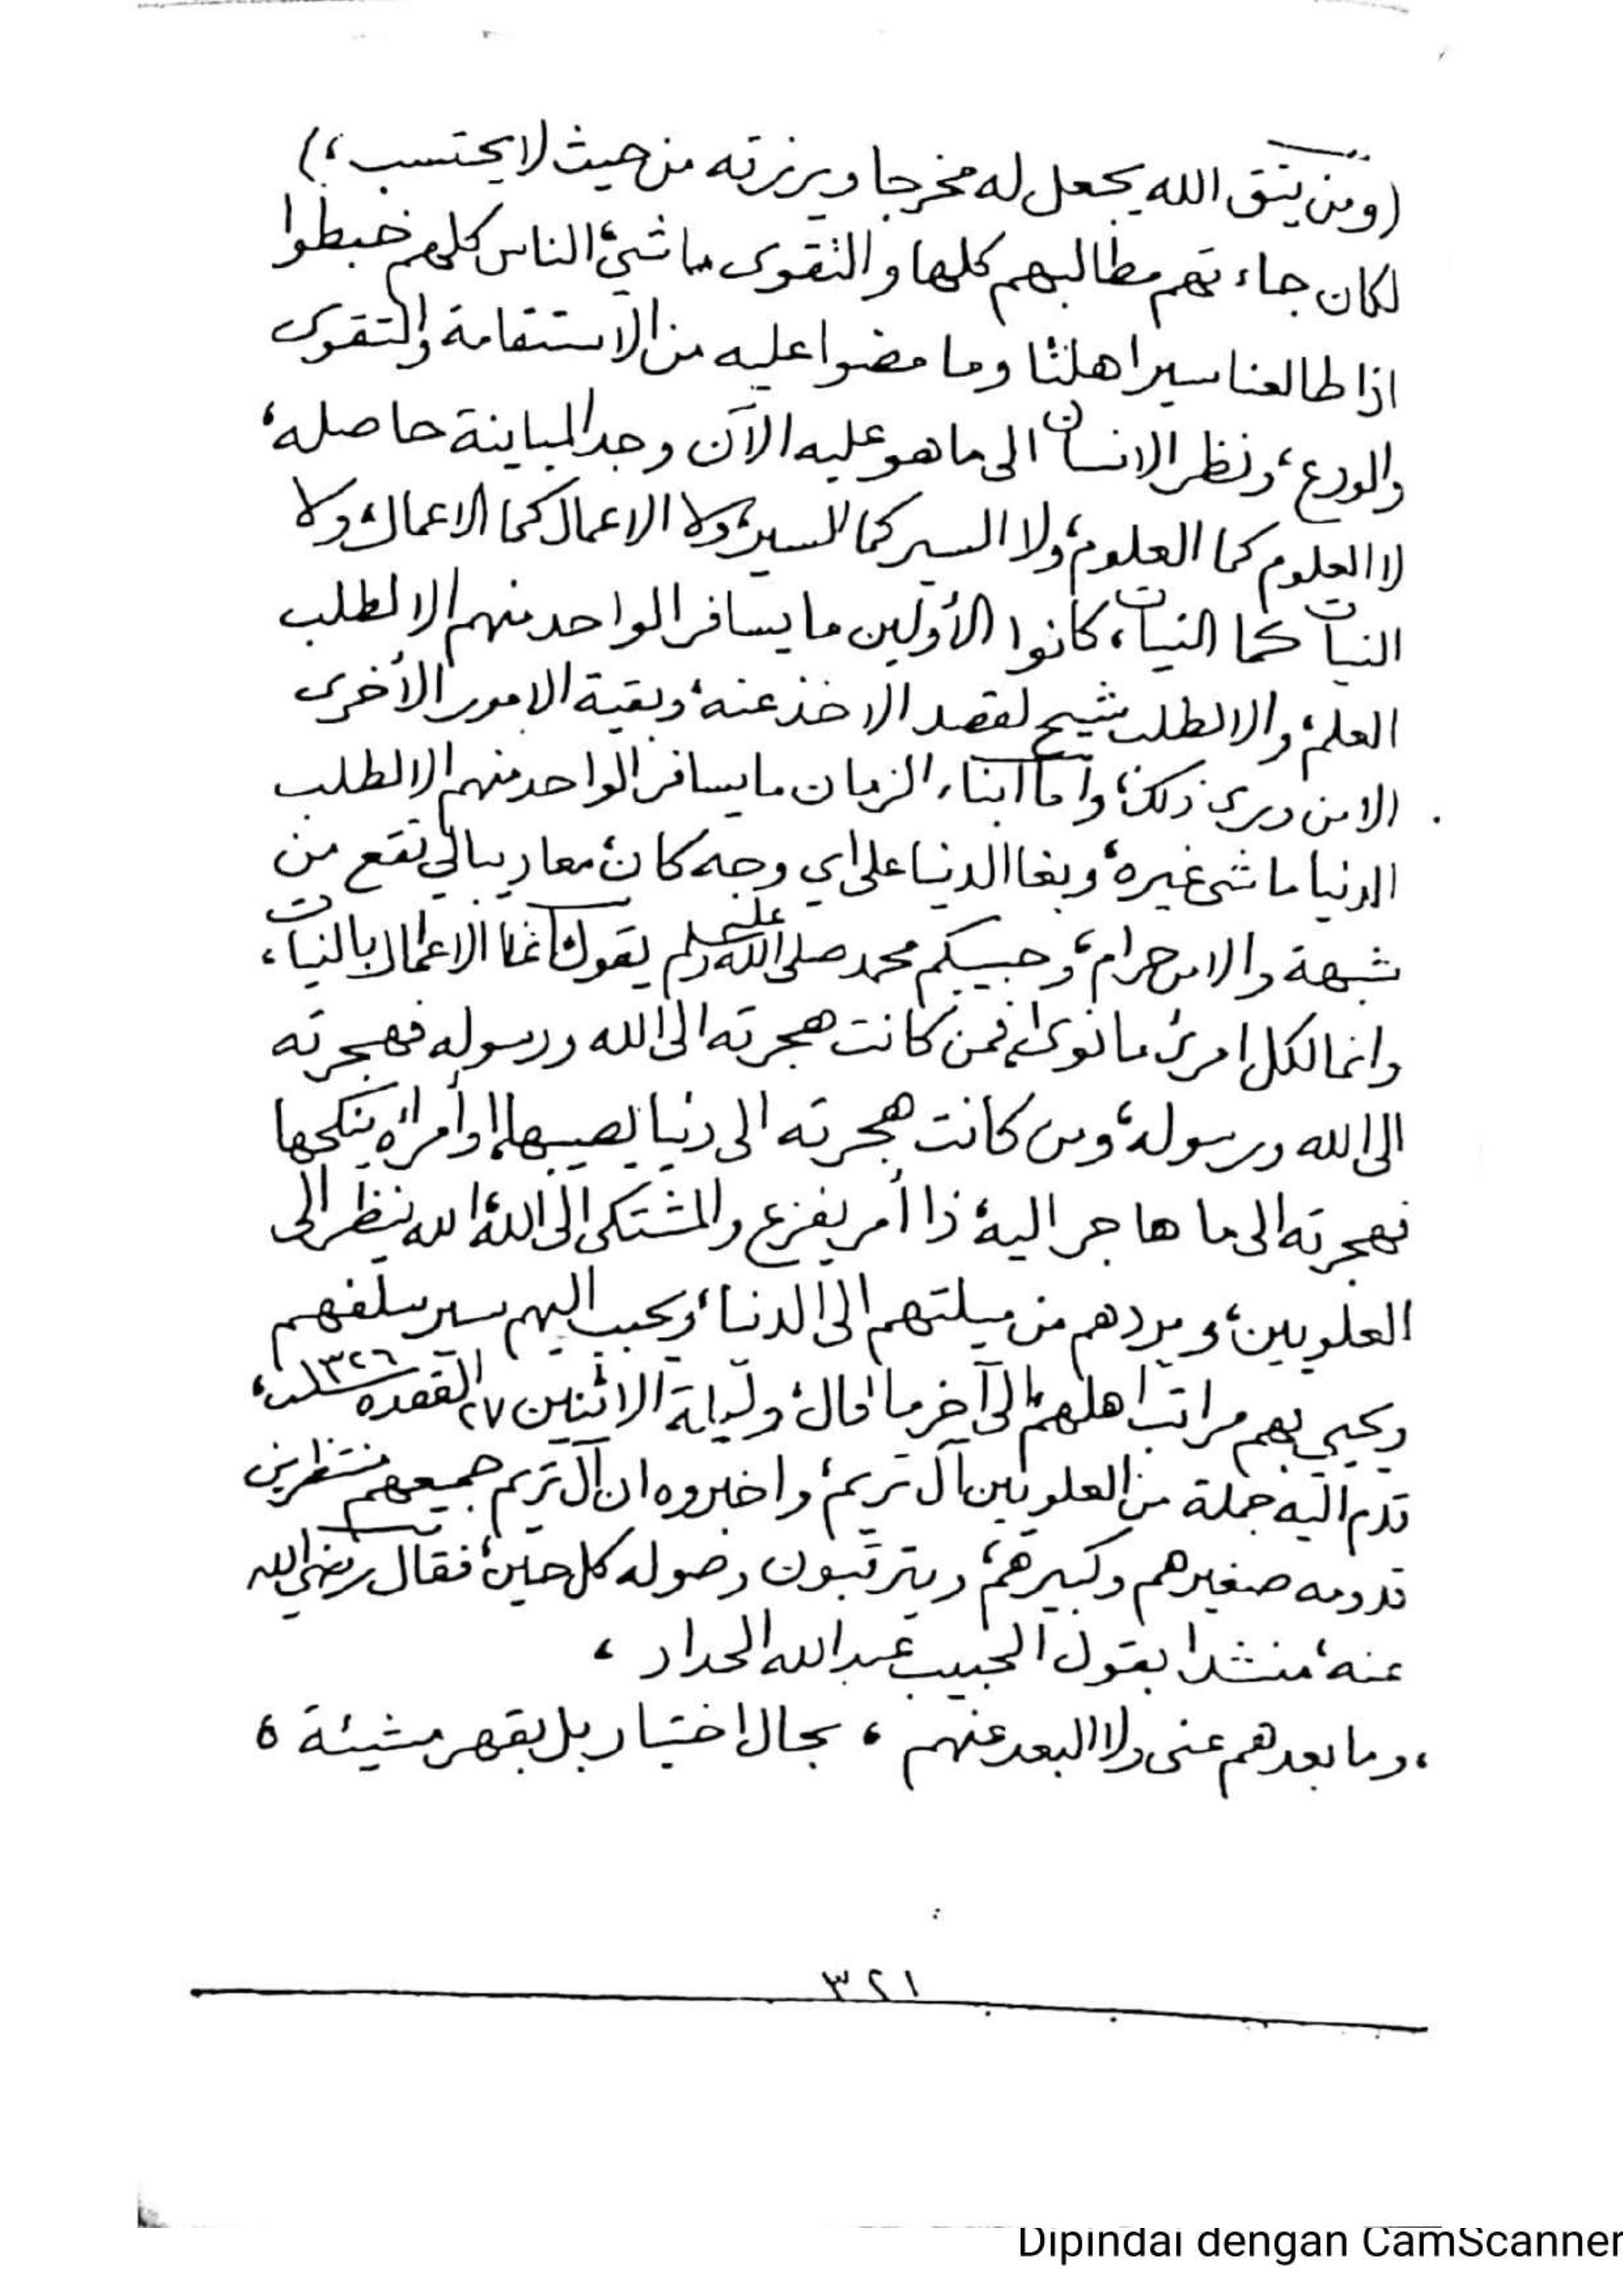 (ومن يتق الله يجعل له مخرجا ويرزقه من حيث لا يحتسب،)
لكان جاءتهم مطالبهم كلها والتقوى ماشيء، الناس كلهم خبطوا
اذا طالعنا سير اهلنا وما مضوا عليه من الاستقامة والتقوى
والورع، ونظر الانسان الى ما هو عليه الآن وجد المباينة حاصله،
لا العلوم كما العلوم، ولا السير كما السير، ولا الاعمال كما الاعمال، ولا
النيات كما النيات، كانوا الأولين ما يسافر الواحد منهم الا لطلب
العلم، والا لطلب شيخ لقصد الاخذ عنه، وبقية الامور الأخرى
الا من ورى ذلك، وأما ابناء الزمان ما يسافر الواحد منهم الا لطلب
الدنيا ما شى غيره، وبغا الدنيا على اي وجه كان، معاد يبالي تقع من
شبهة والا من حرام، وحبيبكم محمد صلى الله عليه وسلم يقول، انما الاعمال بالنيات،
وانما لكل امرئ ما نوى، فمن كانت هجرته الى الله ورسوله فهجرته
الى الله ورسوله، ومن كانت هجرته الى دنيا يصيبها، اوأمرأه ينكحها
فهجرته الى ما هاجر اليه، ذا أمر يفزع والمشتكى الى الله، الله ينظر الى
العلويين، ويردهم من ميلتهم الى الدنيا، ويحبب اليهم سير سلفهم
ويحيي بهم مراتب اهلهم، الى آخر ما قال، وليلة الاثنين ٢٧ القعده ١٣٢٦
قدم اليه جملة من العلويين آل تريم، واخبروه ان آل تريم جميعهم منتظرين
قدومه صغيرهم وكبيرهم، ويترقبون وصوله كل حين، فقال رضي الله
عنه، منشدا بقول الحبيب عبدالله الحداد ،
، وما بعدهم عنى ولا البعد عنهم ، بحال اختيار بل بقهر مشيئة ه
٣٢١
Dipindai dengan CamScanner